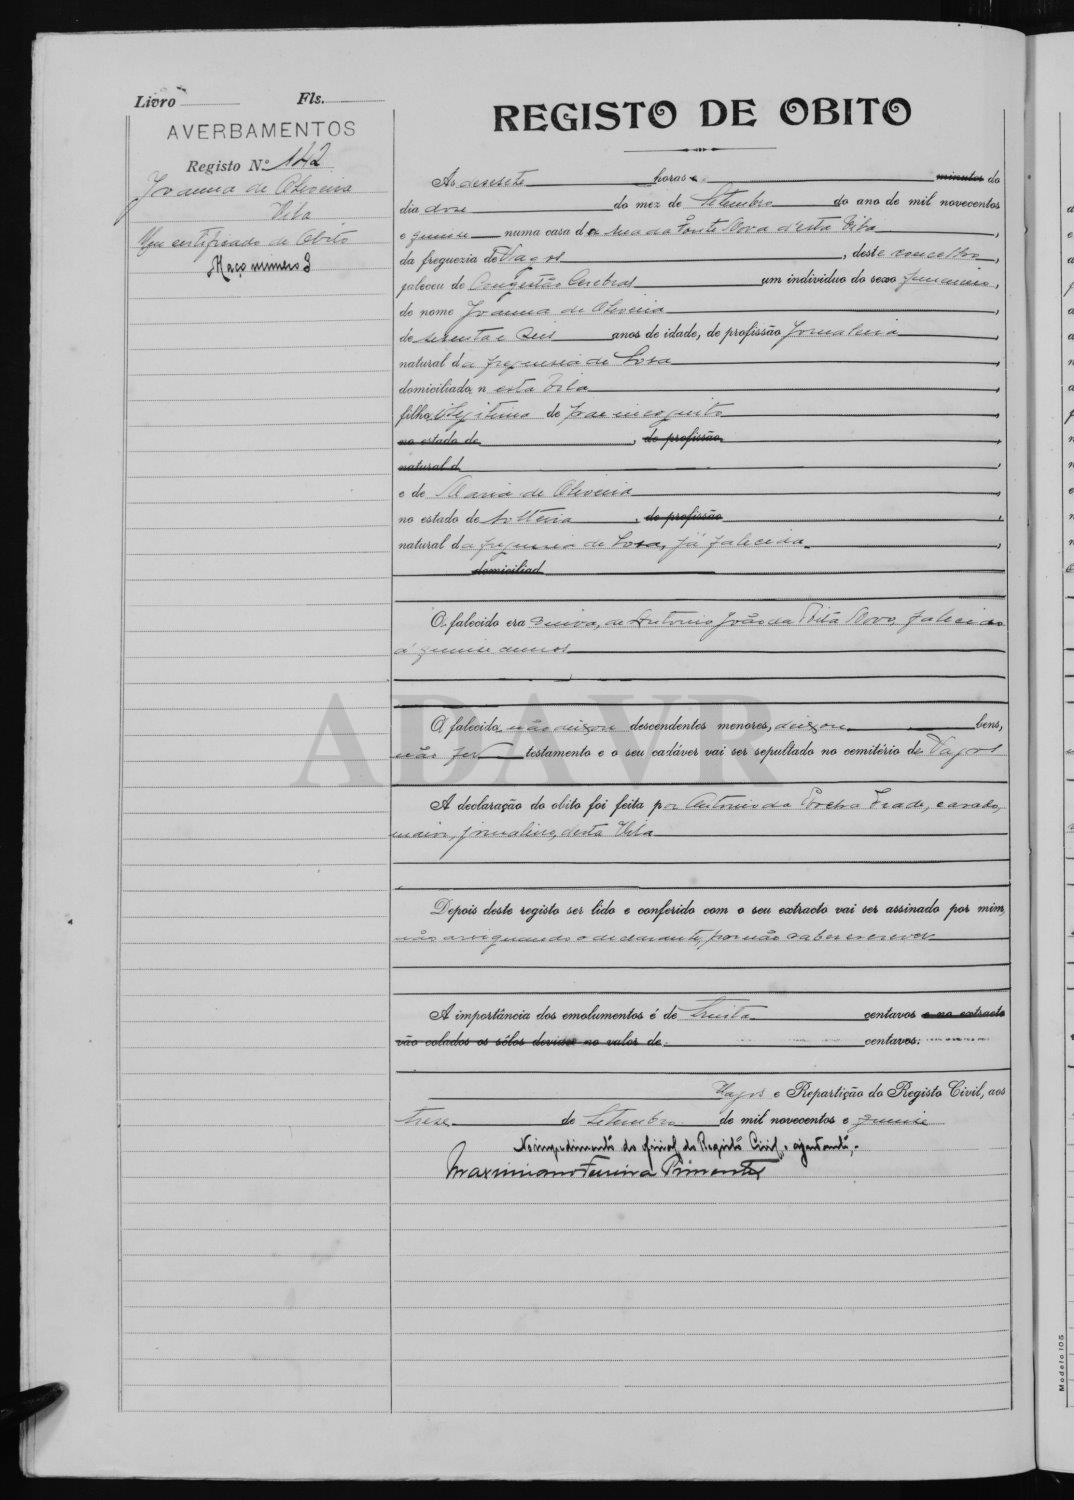 Livro Fls.
AVERBAMENTOS
Registo Nº 142
Joanna de Oliveira
Vila
Um certificado de Obito
Maço número 3
REGISTO DE OBITO
As desesete horas e minutos do
dia dose do mez de Setembro do ano de mil novecentos
e quinse numa casa da Rua da Fonte Nova d'esta Vila,
da freguezia de Vagos, deste concelho,
faleceu de Congestão Cerebral um individuo do sexo femenino,
de nome Joanna de Oliveira,
de sesenta e seis anos de idade, de profissão Jornaleira,
natural da freguesia de Sosa,
domiciliada n esta Vila,
filha ilegitima de pae incognito,
no estado de , de profissão,
natural d,
e de Maria de Oliveira,
no estado de solteira, de profissão,
natural da freguesia de Sosa, já falecida,
domiciliad
O falecido era viuva, de Antonio João da Vila Novo, falecido
á quinse annos
A falecida não deixou descendentes menores, deixou bens,
não fez testamento e o seu cadáver vai ser sepultado no cemitério de Vagos
A declaração do obito foi feita por Antonio da Rocha Frade, casado,
maior, jornaleiro, desta Vila
Depois deste registo ser lido e conferido com o seu extracto vai ser assinado por mim,
não assignando o declarante, por não saber escrever
A importância dos emolumentos é de trinta centavos e no extracto
vão colados os sêlos devidos no valor de centavos.
Vagos e Repartição do Registo Civil, aos
trese de Setembro de mil novecentos e quinse
No impedimento do oficial do Registo Civil, o ajudante,
Maximiano Ferreira Pimentel
ADAVR
Modelo 105